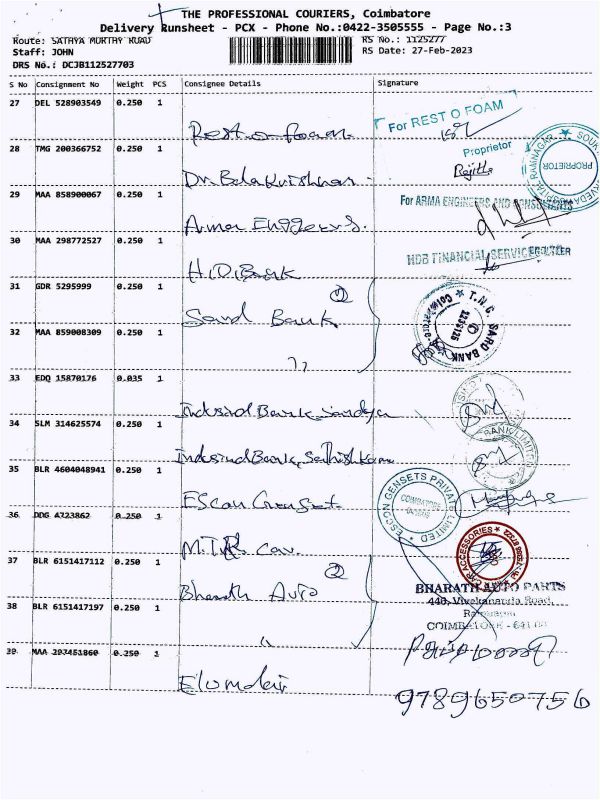 THE PROFESSIONAL COURIERS, Coimbatore
Delivery Runsheet - PCX - Phone No.:0422-3505555 - Page No.:3
Route: SATHYA MURTHY ROAD
RS No.: 1125277
Staff: JOHN
RS Date: 27-Feb-2023
DRS No.: DCJB112527703
S No Consignment No Weight PCS Consignee Details Signature
27 DEL 528903549 0.250 1
Rest-o-foam
For REST O FOAM
Proprietor
28 TMG 200366752 0.250 1
Dr. Balakrishnan
PROPRIETOR
29 MAA 858900067 0.250 1
For ARMA ENGINEERS AND CONSULTANTS
Arma Enggeers.
30 MAA 298772527 0.250 1
HDB FINANCIAL SERVICES
H.D.Bank
31 GDR 5295999 0.250 1
Sard Bank 2
T.N.C. SARD BANK
32 MAA 859008309 0.250 1
33 EDQ 15870176 0.035 1
Indusind Bank, Sandya
34 SLM 314625574 0.250 1
Indusind Bank, Sathishkam
BANK LIMITED
35 BLR 4604048941 0.250 1
Escon Genset
ESCON GENSETS PRIVATE LIMITED
COIMBATORE
36 DDG 4723862 0.250 1
CAR ACCESSORIES
37 BLR 6151417112 0.250 1
Bharath Auto 2
BHARATH AUTO PARTS
446, Vivekananda Road,
Ramnagar
COIMBATORE - 641
38 BLR 6151417197 0.250 1
39 MAA 297451860 0.250 1
9789650756